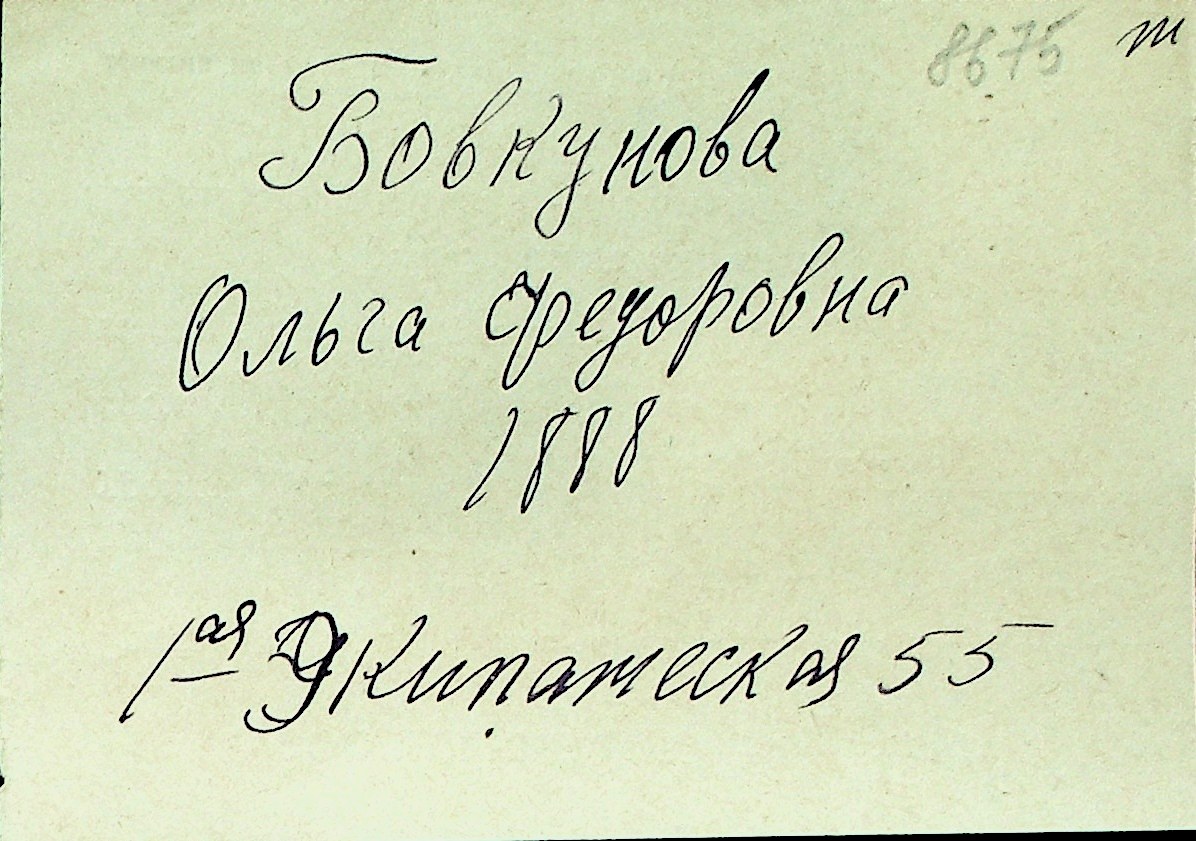 8675 т
Бовкунова
Ольга Федоровна
1888
1ая Экипажеская 55